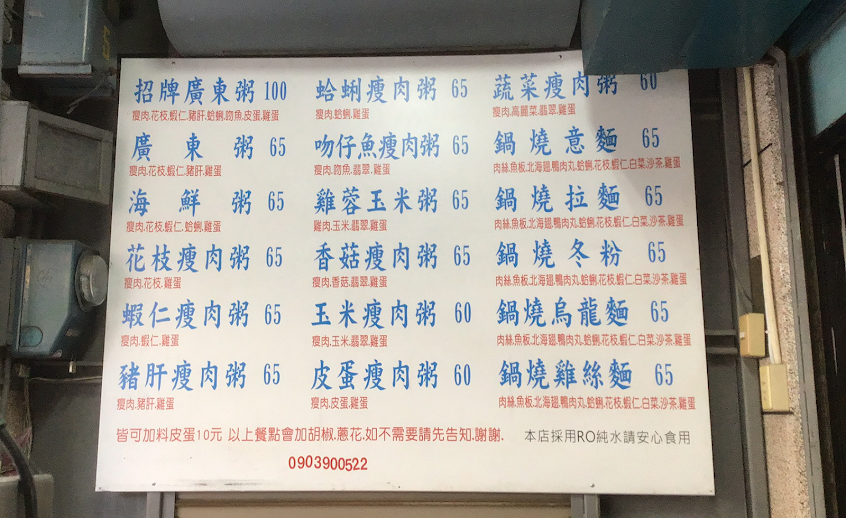 招牌廣東粥 100
瘦肉.花枝.蝦仁.豬肝.蛤蜊.吻魚.皮蛋.雞蛋
廣東粥 65
瘦肉.花枝.蝦仁.豬肝.雞蛋
海鮮粥 65
瘦肉.花枝.蝦仁.蛤蜊.雞蛋
花枝瘦肉粥 65
瘦肉.花枝.雞蛋
蝦仁瘦肉粥 65
瘦肉.蝦仁.雞蛋
豬肝瘦肉粥 65
瘦肉.豬肝.雞蛋
蛤蜊瘦肉粥 65
瘦肉.蛤蜊.雞蛋
吻仔魚瘦肉粥 65
瘦肉.吻魚.翡翠.雞蛋
雞蓉玉米粥 65
雞肉.玉米.翡翠.雞蛋
香菇瘦肉粥 65
瘦肉.香菇.翡翠.雞蛋
玉米瘦肉粥 60
瘦肉.玉米.翡翠.雞蛋
皮蛋瘦肉粥 60
瘦肉.皮蛋.雞蛋
蔬菜瘦肉粥 60
瘦肉.高麗菜.翡翠.雞蛋
鍋燒意麵 65
肉絲.魚板.北海翅.鴨肉丸.蛤蜊.花枝.蝦仁.白菜.沙茶.雞蛋
鍋燒拉麵 65
肉絲.魚板.北海翅.鴨肉丸.蛤蜊.花枝.蝦仁.白菜.沙茶.雞蛋
鍋燒冬粉 65
肉絲.魚板.北海翅.鴨肉丸.蛤蜊.花枝.蝦仁.白菜.沙茶.雞蛋
鍋燒烏龍麵 65
肉絲.魚板.北海翅.鴨肉丸.蛤蜊.花枝.蝦仁.白菜.沙茶.雞蛋
鍋燒雞絲麵 65
肉絲.魚板.北海翅.鴨肉丸.蛤蜊.花枝.蝦仁.白菜.沙茶.雞蛋
皆可加料皮蛋10元 以上餐點會加胡椒.蔥花.如不需要請先告知.謝謝、 本店採用RO純水請安心食用
0903900522